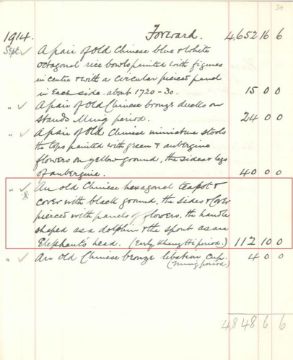 1914. Forward. 4652 16 6
Sept. A pair of old Chinese blue & white
octagonal rice bowls painted with figures
in centre & with a circular pierced panel
in each side. about 1720-30. 15 0 0
" A pair of Old Chinese bronze ducks on
stands Ming period. 24 00
" A pair of Old Chinese miniature stools
the tops painted with green & aubergine
flowers on yellow ground, the sides & legs
of aubergine. 40 00
" An old Chinese hexagonal teapot &
cover with black ground, the sides & cover
pierced with panels of flowers. the handle
shaped as a dolphin & the spout as an
Elephants head. (Early Khang-hi period.) 112 10 0
" An old Chinese bronze libation cup. 4 0 0
(Ming period)
4848 6 6